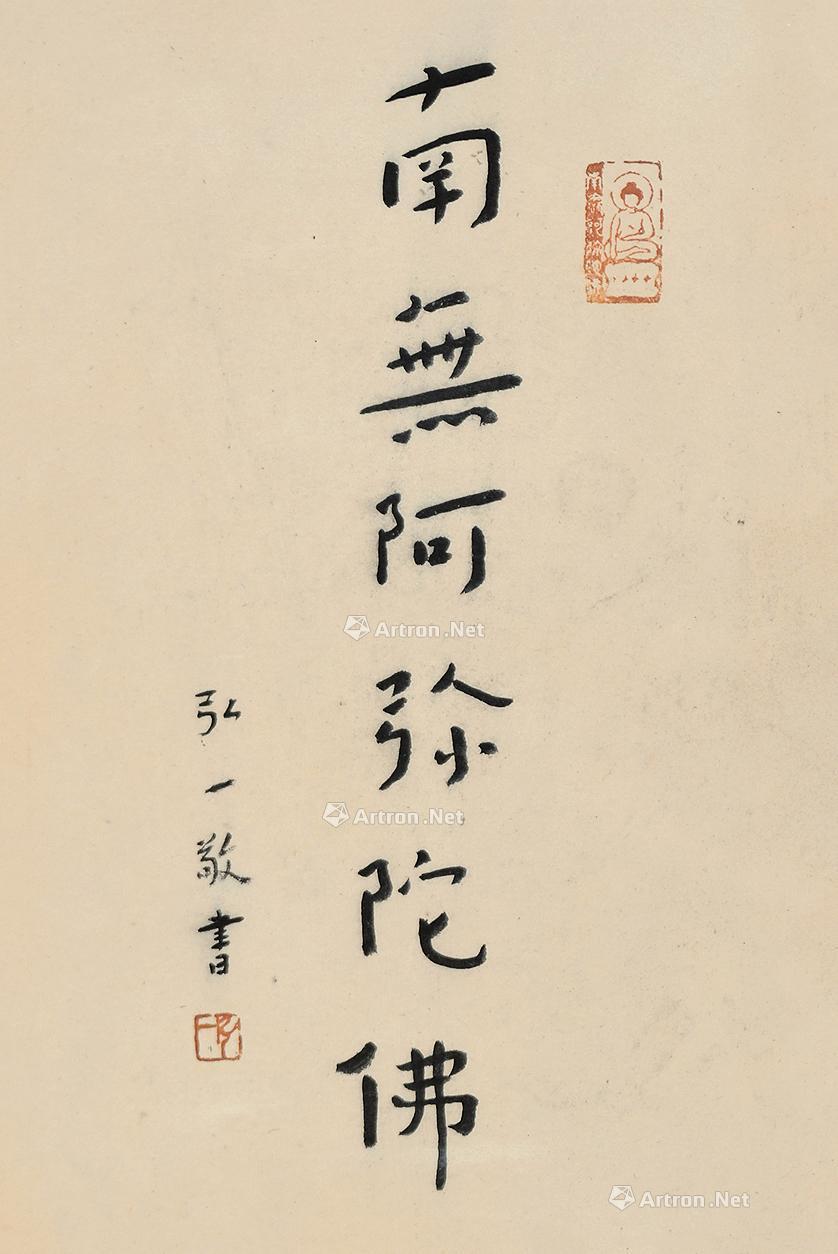 南無阿弥陀佛
弘一敬書
Artron.Net
Artron.Net
Artron.Net